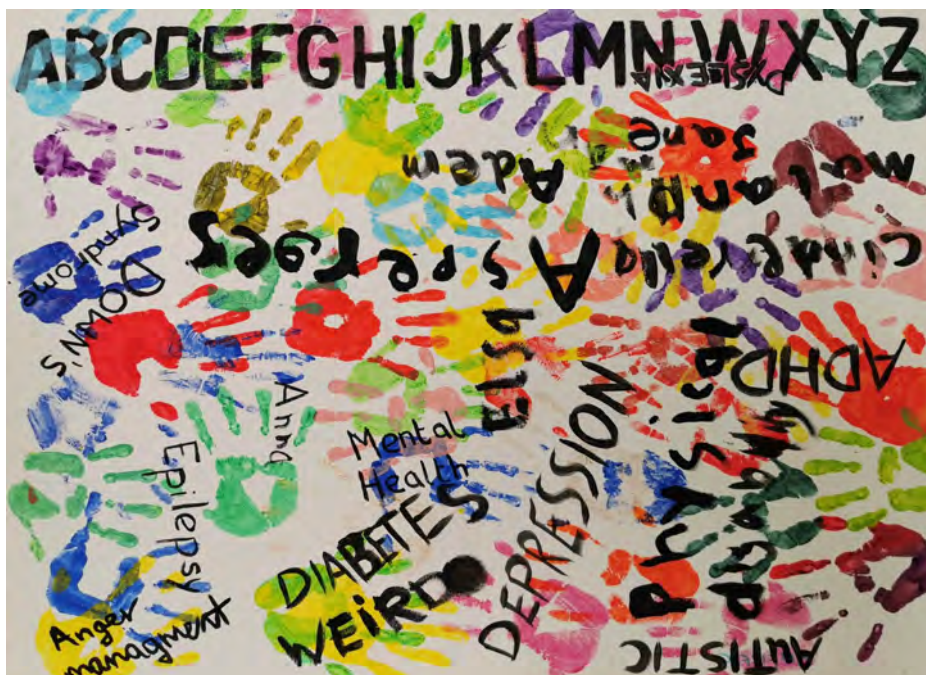 ABCDEFGHIJKLMNWXYZ
DYSLEXIA
Adem
Jane
Cinderella
Aspergers
DOWN'S
Syndrome
Elsa
ADHD
Anna
Mental
Health
Epilepsy
DIABETES
WEIRDO
DEPRESSION
Physical
disability
Anger
managment
AUTISTIC